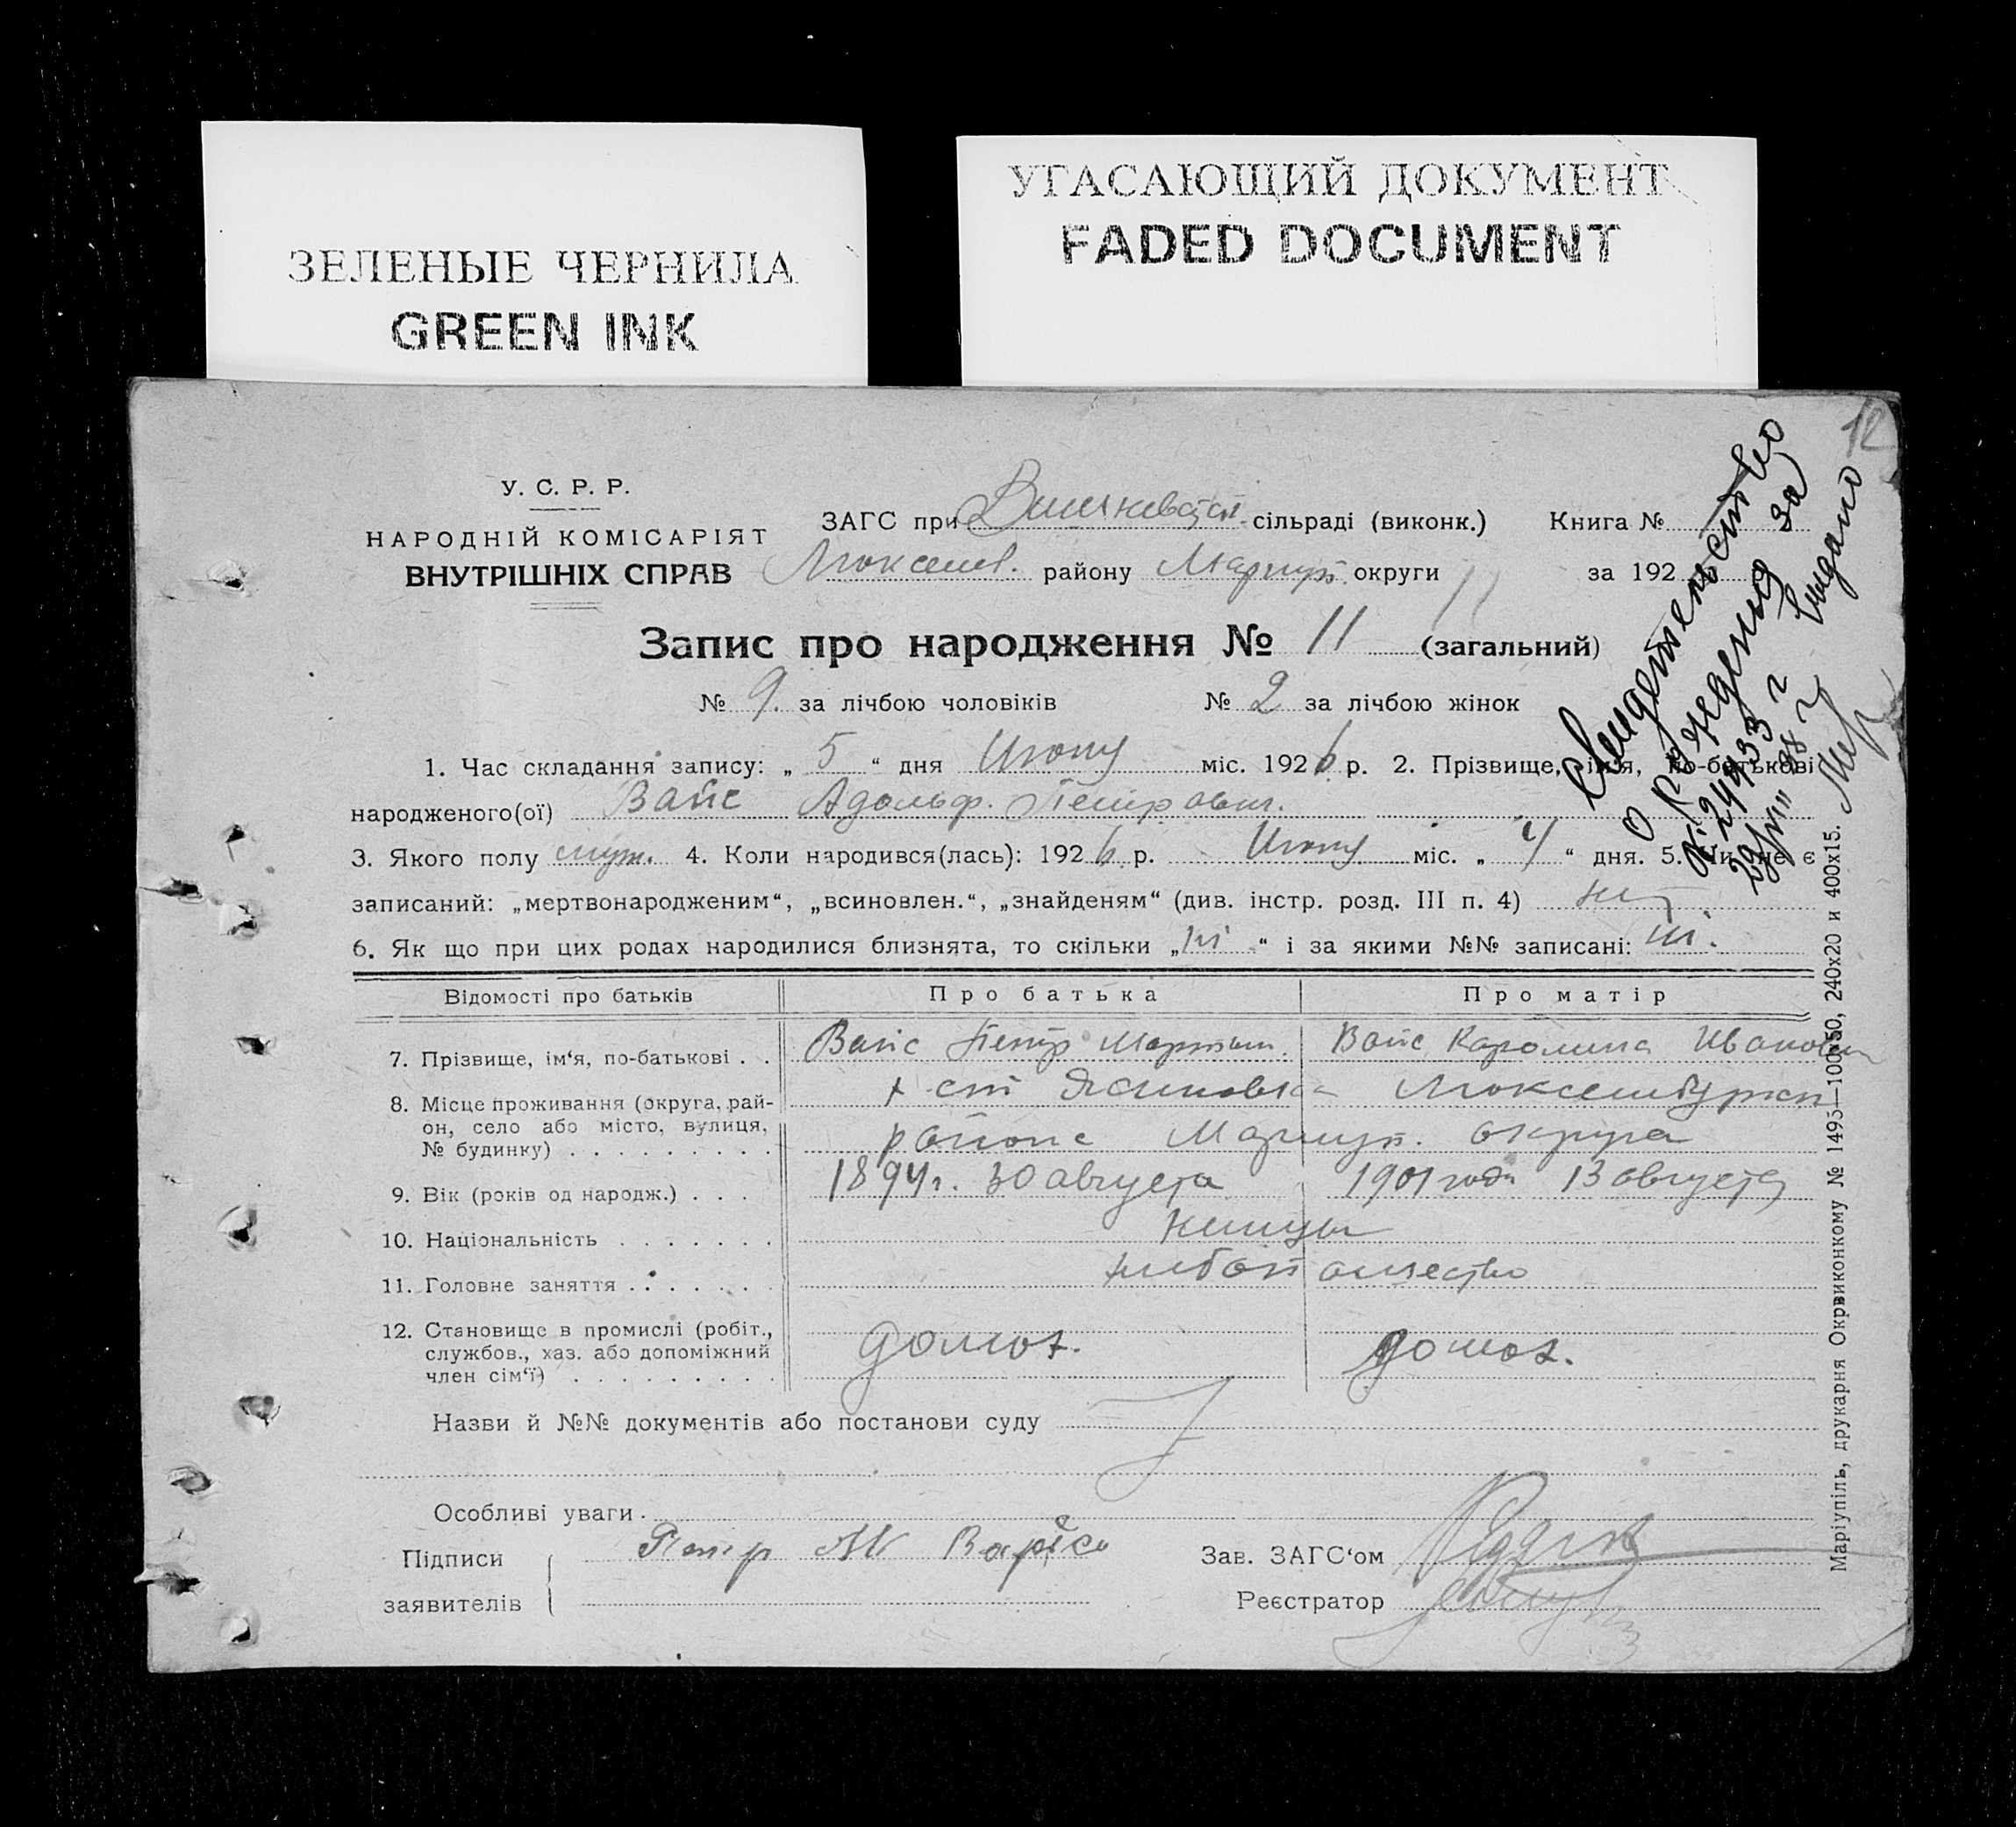 ЗЕЛЕНЫЕ ЧЕРНИЛА
GREEN INK
УГАСАЮЩИЙ ДОКУМЕНТ
FADED DOCUMENT
12
У. С. Р. Р.
НАРОДНІЙ КОМІСАРІЯТ
ВНУТРІШНІХ СПРАВ
ЗАГС при сільраді (виконк.) Книга №
Люксемб. району Маріуп. округи за 192
11
Запис про народження № 11 (загальний)
№ 9. за лічбою чоловіків № 2 за лічбою жінок
1. Час складання запису: „ 5 “ дня Июня міс. 1926 р. 2. Прізвище, ім'я, по-батькові
народженого(ої) Вайс Адольф. Петрович.
3. Якого полу муж. 4. Коли народився(лась): 1926 р. Июня міс. „ 4 “ дня. 5. Чи не є
записаний: „мертвонародженим“, „всиновлен.“, „знайденям“ (див. інстр. розд. III п. 4)
6. Як що при цих родах народилися близнята, то скільки „ні“ і за якими №№ записані: ні.
Свидетельство
о рождении за
выдано
Відомості про батьків Про батька Про матір
7. Прізвище, ім‘я, по-батькові . . Вайс Петр Мартын. Вайс Каролина Ивановна
8. Місце проживання (округа, рай-
он, село або місто, вулиця,
№ будинку) . . . . . . . . .
Люксембургск
района Мариуп. округа
9. Вік (років од народж.) . . . 1894 г. 30 августа 1901 года 13 августа
10. Національність . . . . . . . немцы
11. Головне заняття . . . . . . хлебопашество
12. Становище в промислі (робіт.,
службов., хаз. або допоміжний
член сім‘ї) . . . . . . . . .
домох. домох.
Назви й №№ документів або постанови суду
Особливі уваги .
Підписи
заявителів
Зав. ЗАГС‘ом
Реєстратор
Маріупіль, друкарня Окрвиконкому № 1495—100х50, 240х20 и 400х15.